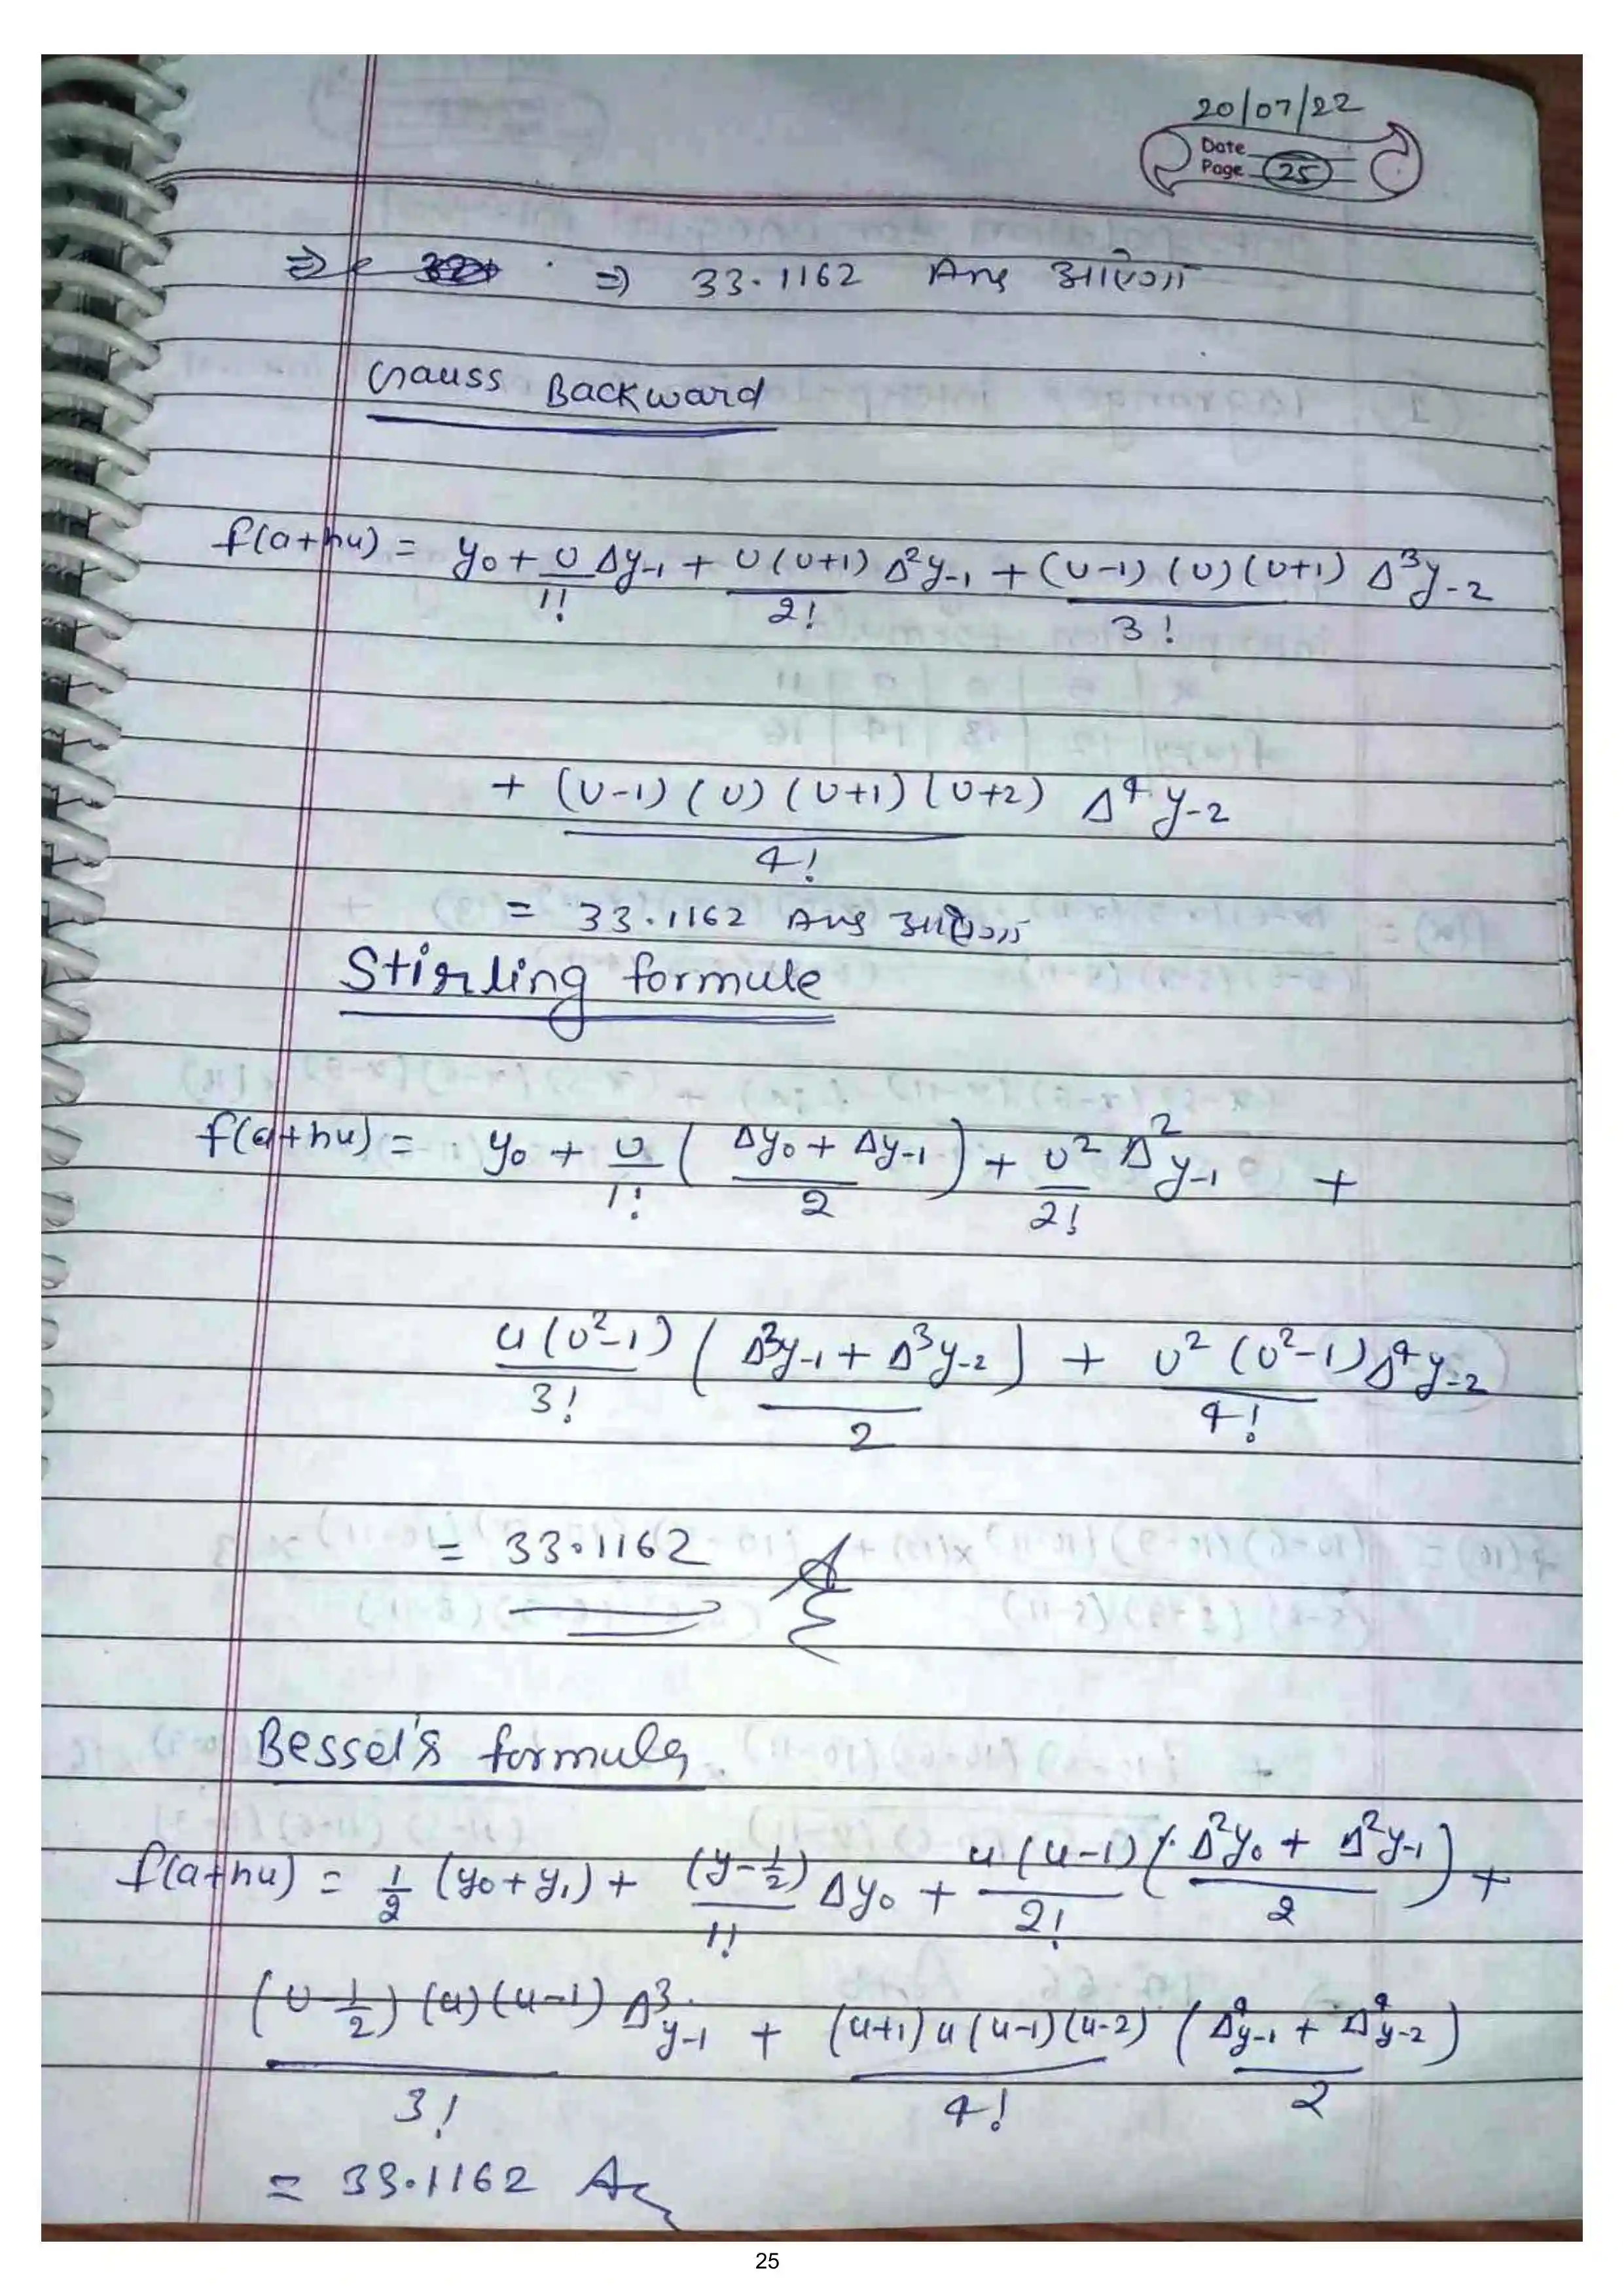 20/07/22
Date
Page 25
⇒ 33.1162 Ans आएगा
Gauss Backward
f(a+hu) = y₀ + U/1! Δy₋₁ + U(U+1)/2! Δ²y₋₁ + (U-1)(U)(U+1)/3! Δ³y₋₂
+ (U-1)(U)(U+1)(U+2)/4! Δ⁴y₋₂
= 33.1162 Ans आएगा
Stirling formule
f(a+hu) = y₀ + U/1! ( (Δy₀ + Δy₋₁)/2 ) + U²/2! Δ²y₋₁ +
u(U²-1)/3! ( (Δ³y₋₁ + Δ³y₋₂)/2 ) + U²(U²-1)/4! Δ⁴y₋₂
= 33.1162 A
Bessel's formula
f(a+hu) = 1/2 (y₀+y₁) + (y-1/2)/1! Δy₀ + u(u-1)/2! ( (Δ²y₀ + Δ²y₋₁)/2 ) +
(U-1/2)(u)(u-1)/3! Δ³y₋₁ + (u+1)u(u-1)(u-2)/4! ( (Δ⁴y₋₁ + Δ⁴y₋₂)/2 )
= 33.1162 A
25